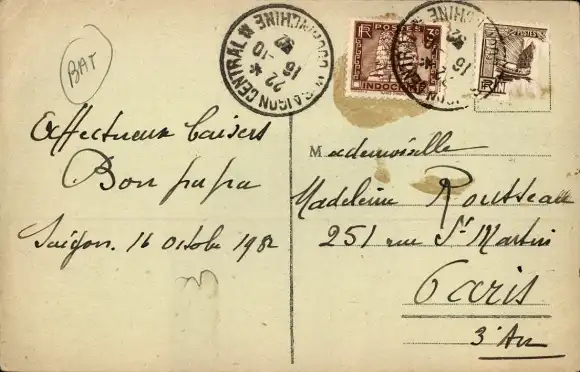 BAT
SAIGON CENTRAL
COCHINCHINE
22
16-10
32
RF POSTES
INDOCHINE
POSTES
RF
Affectueux baisers
Bon papa
Saigon. 16 Octobre 1932
Mademoiselle
Madeleine Rousseau
251 rue St Martin
Paris
3e Arr